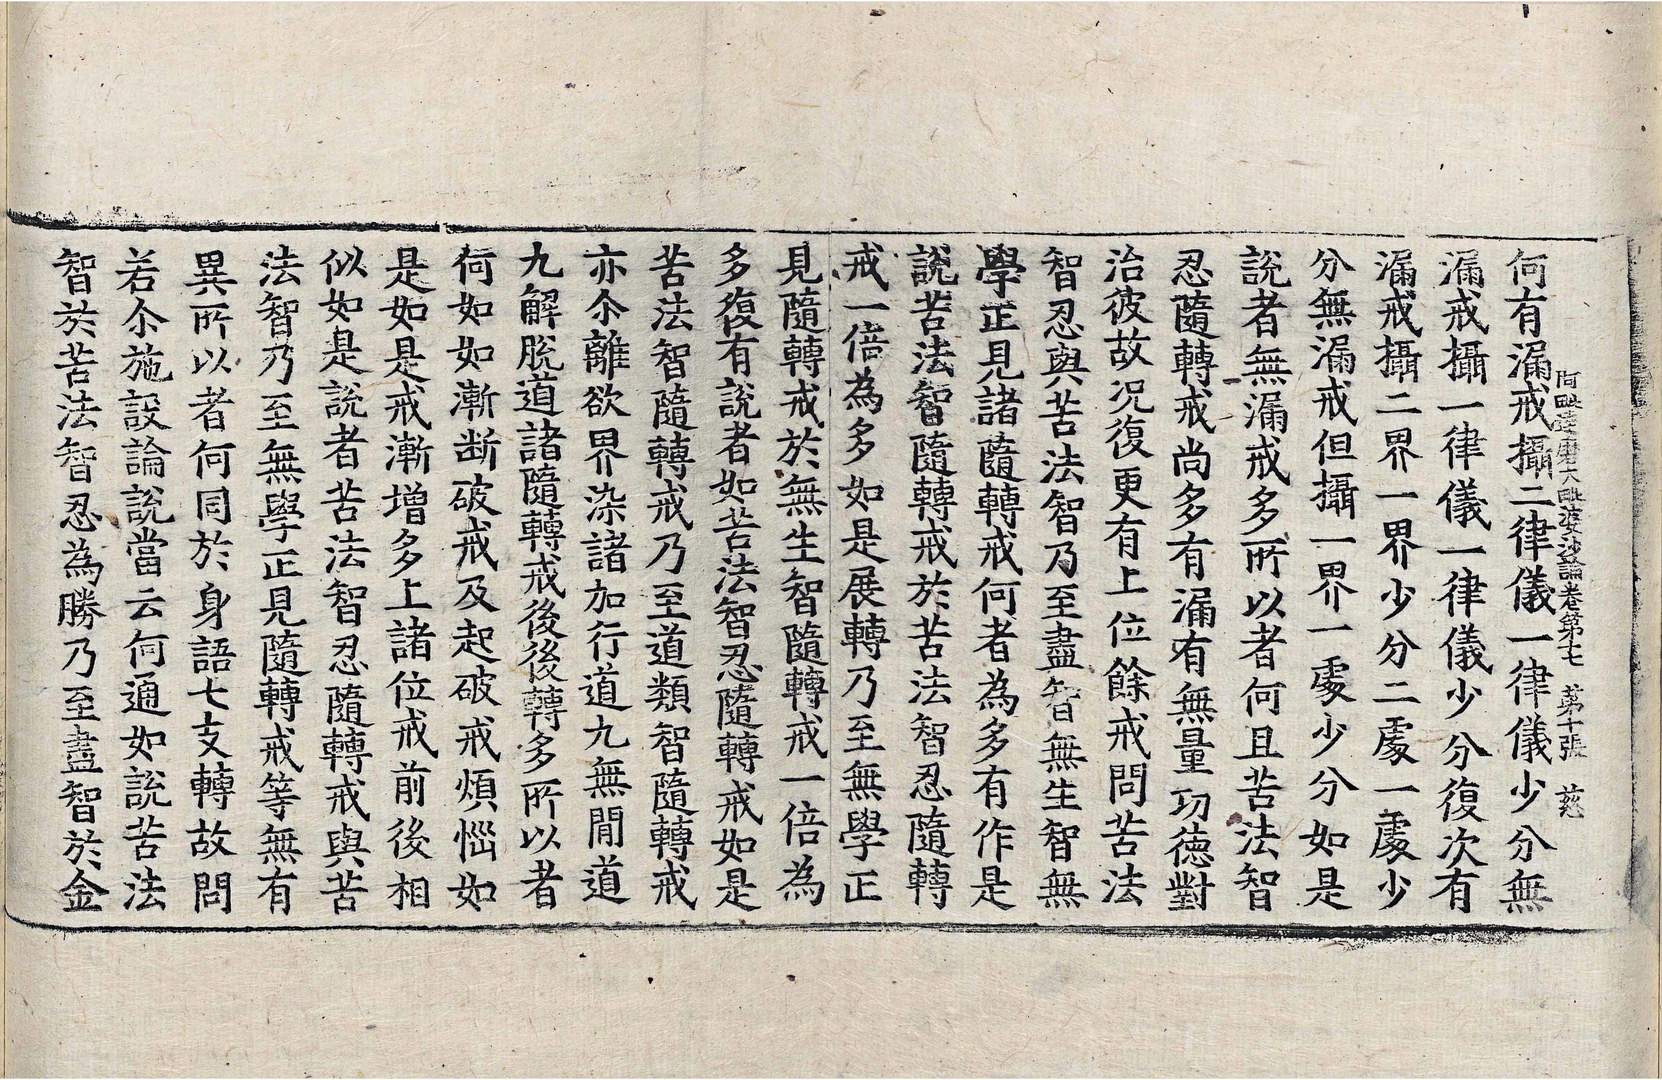 阿毗達磨大毗婆沙論卷第十七　第十張　慈
何有漏戒攝二律儀一律儀少分無
漏戒攝一律儀一律儀少分復次有
漏戒攝二界一界少分二處一處少
分無漏戒但攝一界一處少分如是
說者無漏戒多所以者何且苦法智
忍隨轉戒尚多有漏有無量功德對
治彼故况復更有上位餘戒問苦法
智忍與苦法智乃至盡智無生智無
學正見諸隨轉戒何者為多有作是
說苦法智隨轉戒於苦法智忍隨轉
戒一倍為多如是展轉乃至無學正
見隨轉戒於無生智隨轉戒一倍為
多復有說者如苦法智忍隨轉戒如是
苦法智隨轉戒乃至道類智隨轉戒
亦尒離欲界染諸加行道九無間道
九解脫道諸隨轉戒後後轉多所以者
何如如漸断破戒及起破戒煩惱如
是如是戒漸增多上諸位戒前後相
似如是說者苦法智忍隨轉戒與苦
法智乃至無學正見隨轉戒等無有
異所以者何同於身語七支轉故問
若尒施設論說當云何通如說苦法
智於苦法智忍為勝乃至盡智於金